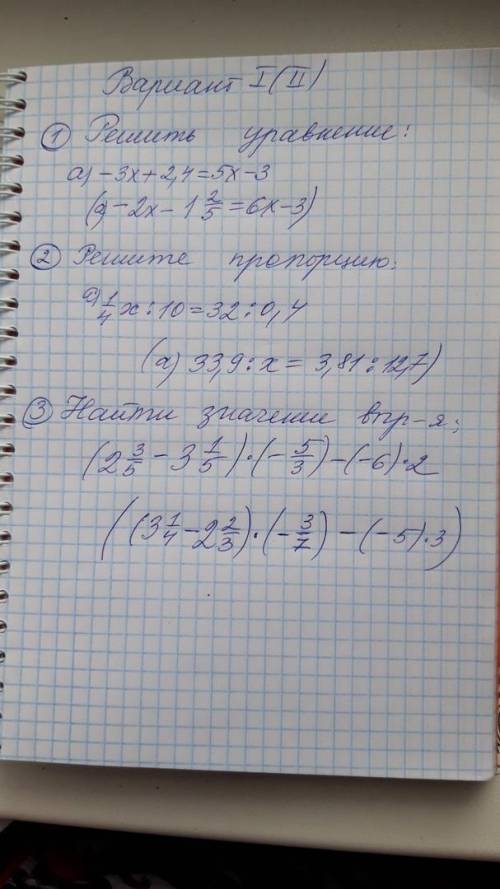 Вариант I (II)
① Решить уравнение:
а) -3x+2,4=5x-3
(а) -2x-1 2/5=6x-3)
② Решите пропорцию:
а) 1/4 x:10=32:0,4
(а) 33,9:x=3,81:12,7)
③ Найти значение выр-я:
(2 3/5 - 3 1/5)·(-5/3)-(-6)·2
((3 1/4 - 2 2/3)·(-3/7)-(-5)·3)